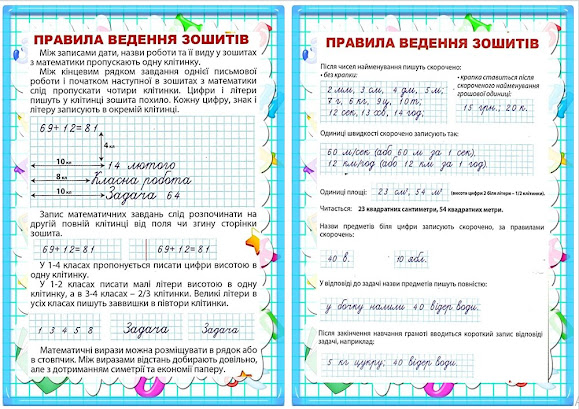 ПРАВИЛА ВЕДЕННЯ ЗОШИТІВ
Між записами дати, назви роботи та її виду у зошитах
з математики пропускають одну клітинку.
Між кінцевим рядком завдання однієї письмової
роботи і початком наступної в зошитах з математики
слід пропускати чотири клітинки. Цифри і літери
пишуть у клітинці зошита похило. Кожну цифру, знак і
літеру записують в окремій клітинці.
69+12=81
4 кл
10 кл 14 лютого
8 кл Класна робота
10 кл Задача 64
Запис математичних завдань слід розпочинати на
другій повній клітинці від поля чи згину сторінки
зошита.
69+12=81 69+12=81
У 1-4 класах пропонується писати цифри висотою в
одну клітинку.
У 1-2 класах писати малі літери висотою в одну
клітинку, а в 3-4 класах – 2/3 клітинки. Великі літери в
усіх класах пишуть заввишки в півтори клітинки.
1 3 4 5 8 Задача Задача
Математичні вирази можна розміщувати в рядок або
в стовпчик. Між виразами відстань добирають довільно,
але з дотриманням симетрії та економії паперу.
ПРАВИЛА ВЕДЕННЯ ЗОШИТІВ
Після чисел найменування пишуть скорочено:
• без крапки:
2 мм, 3 см, 4 дм, 5 м;
7 г, 6 кг, 9 ц, 10 т;
12 сек, 13 хв, 14 год;
• крапка ставиться після
скороченого найменування
грошової одиниці:
15 грн.; 20 к.
Одиниці швидкості скорочено записують так:
60 м/сек (або 60 м за 1 сек).
12 км/год (або 12 км за 1 год).
Одиниці площі: 23 см², 54 м². (висота цифри 2 біля літери – 1/2 клітинки).
Читається: 23 квадратних сантиметри, 54 квадратних метри.
Назви предметів біля цифри записують скорочено, за правилами
скорочень:
40 в. 10 ябл.
У відповіді до задачі назви предметів пишуть повністю:
у бочку налили 40 відер води.
Після закінчення навчання грамоті вводиться короткий запис відповіді
задачі, наприклад:
5 кг цукру; 40 відер води.